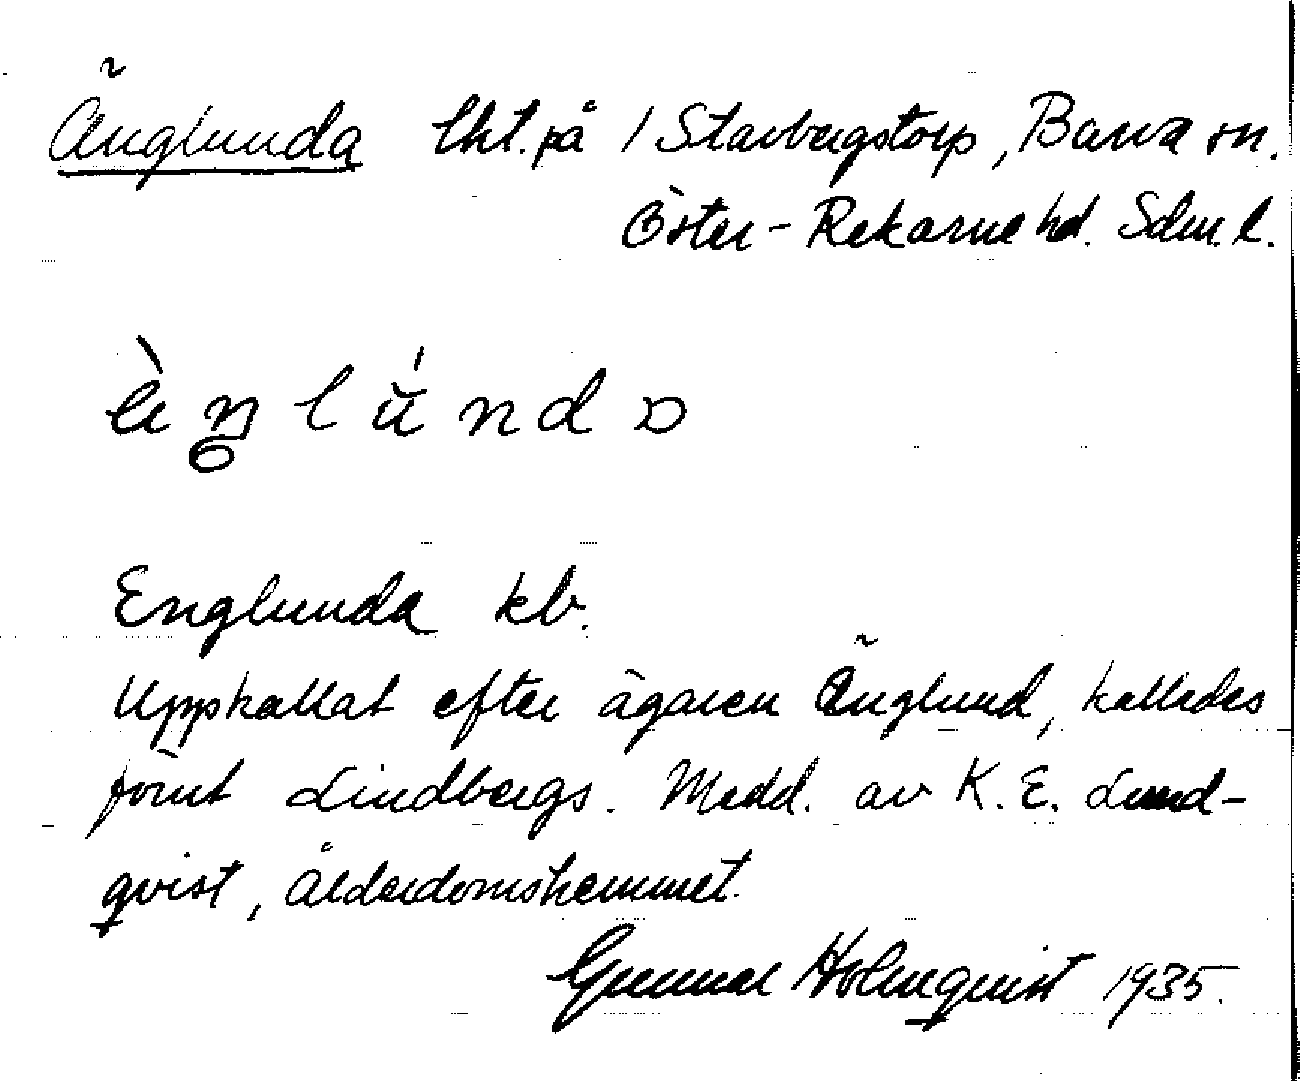 Änglunda lht. på 1 Stavbergstorp, Barva sn.
Öster-Rekarne hd. Sdm. l.
Englunda kb.
Uppkallat efter ägaren Änglund, kallades
förut Lindbergs. Medd. av K. E. Lund-
qvist, ålderdomshemmet.
Gunnar Holmqvist 1935.